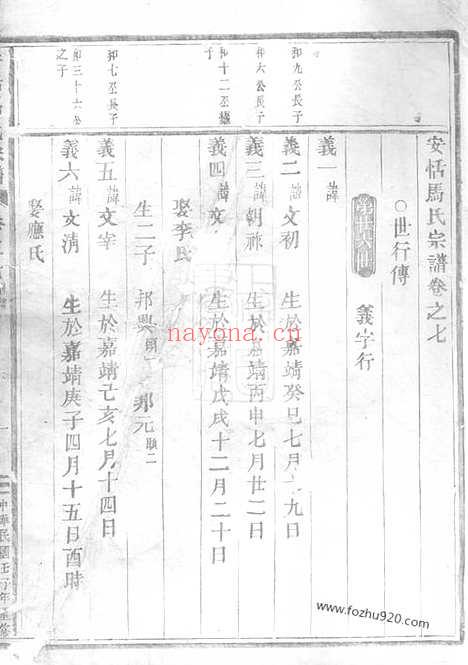 安恬馬氏宗譜卷之七
○世行傳
義字行
義一 諱
卯九公長子
義二 諱文初 生於嘉靖癸巳七月 九日
卯六公長子
義三 諱朝 生於嘉靖丙申七月廿二日
卯十二公
子
義四 諱文 生於嘉靖戊戌十二月二十日
娶李氏
生二子 邦興 邦元
卯七公長子
義五 諱文宰 生於嘉靖己亥七月十四日
卯三十六公
之子
義六 諱文清 生於嘉靖庚子四月十五日酉時
娶應氏
中華民國壬午年重修
nayona.cn
www.fozhu920.com